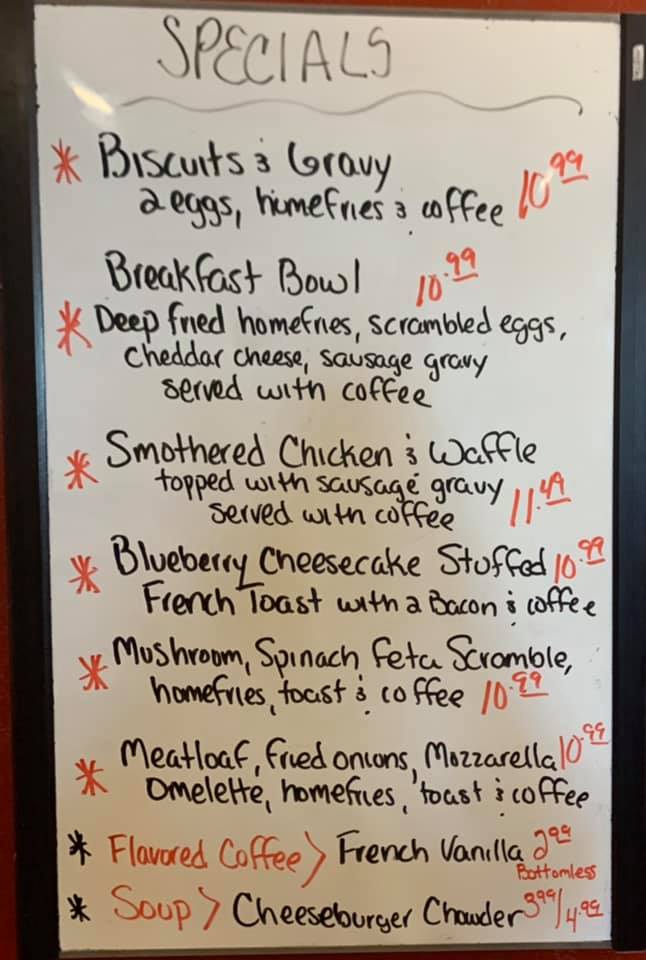 SPECIALS
* Biscuits & Gravy 10.99
2 eggs, homefries & coffee
Breakfast Bowl 10.99
* Deep fried homefries, scrambled eggs,
cheddar cheese, sausage gravy
served with coffee
* Smothered Chicken & Waffle
topped with sausage gravy 11.49
served with coffee
* Blueberry Cheesecake Stuffed 10.99
French Toast with 2 Bacon & coffee
* Mushroom, Spinach Feta Scramble,
homefries, toast & coffee 10.99
* Meatloaf, fried onions, Mozzarella 10.99
Omelette, homefries, toast & coffee
* Flavored Coffee > French Vanilla 2.99
Bottomless
* Soup > Cheeseburger Chowder 3.99/4.99